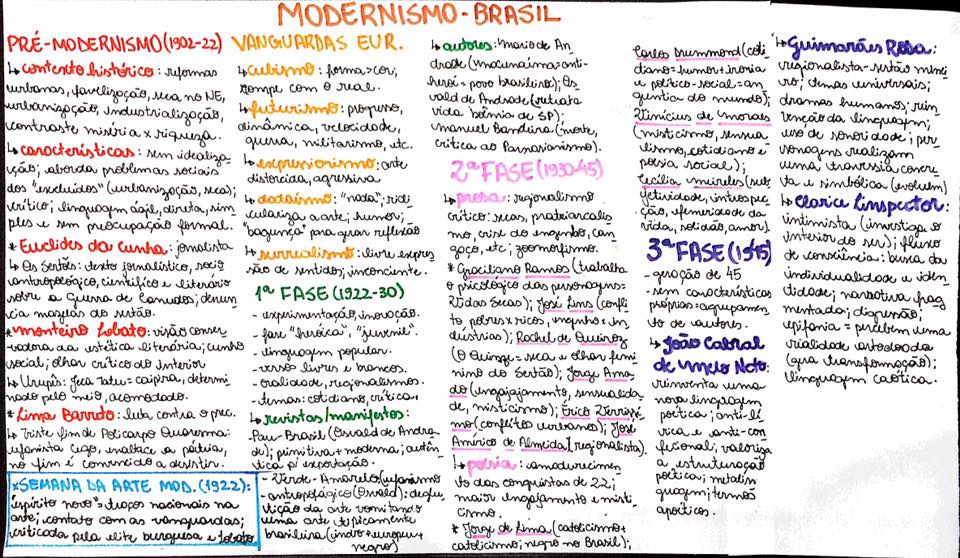 MODERNISMO-BRASIL
PRÉ-MODERNISMO (1902-22)
↳ contexto histórico: reformas
urbanas, favelização, seca no NE,
urbanização, industrialização,
contraste miséria x riqueza.
↳ características: sem idealiza-
ção; aborda problemas sociais
dos "excluídos" (urbanização, seca);
crítico; linguagem ágil, direta, sim
ples e sem preocupação formal.
* Euclides da Cunha: jornalista
↳ Os Sertões: texto jornalístico, socio
antropológico, científico e literário
sobre a Guerra de Canudos; denun
cia mazelas do sertão.
* Monteiro Lobato: visão conser
vadora da estética literária; cunho
social; olhar crítico do interior
↳ Urupês: Jeca Tatu = caipira, determi
nado pelo meio, acomodado.
* Lima Barreto: luta contra o prec.
↳ Triste fim de Policarpo Quaresma:
ufanista cego, enaltece a pátria,
no fim é convencido a desistir.
*SEMANA DA ARTE MOD. (1922):
"espírito novo": traços nacionais na
arte; contato com as vanguardas;
criticada pela elite burguesa e Lobato
VANGUARDAS EUR.
↳ cubismo: forma > cor;
rompe com o real.
↳ futurismo: progresso,
dinâmica, velocidade,
guerra, militarismo, etc.
↳ expressionismo: arte
distorcida, agressiva.
↳ dadaísmo: "nada"; ridi
culariza a arte; humor;
"bagunça" para gerar reflexão
↳ surrealismo: livre expres
são de sentidos; inconciente.
1ª FASE (1922-30)
- experimentação, inovação.
- fase "heróica", "juvenil".
- linguagem popular.
- verso livres e brancos.
- oralidade, regionalismos.
- temas: cotidiano, crítica,
↳ revistas/manifestos:
Pau-Brasil (Oswald de Andra
de); primitiva + moderna; autên
tica p/ exportação.
- Verde-Amarelo (ufanismo
- antropofágico (Oswald); deglu
tição da arte vomitando
uma arte tipicamente
brasileira (índio + europeu +
negro)
↳ autores: Mario de An
drade (Macunaíma = anti-
herói = povo brasileiro); Os
vald de Andrade (retrata
vida boêmia de SP);
Manuel Bandeira (morte,
crítica ao Parnasianismo).
2ª FASE (1930-45)
↳ prosa: regionalismo
crítico: secas, patriarcalis
mo, crise do engenho, can
gaço, etc; zoomorfismo.
* Graciliano Ramos (trabalha
o psicológico das personagens =
Vidas Secas); José Lins (confli
to, pobres x ricos, engenho + in
dústrias); Rachel de Queiroz
(O Quinze = seca e olhar femi
nino do Sertão); Jorge Ama
do (engajajamento, sensualida
de, misticismo); Érico Veríssi
mo (conflitos urbanos); José
Américo de Almeida (regionalista).
↳ poesia: amadurecimen
to das conquistas de 22;
maior engajamento e misti
cismo.
* Jorge de Lima (catolicismo +
catolicismo; negro no Brasil);
Carlos Drummond (coti
diano = humor + ironia
e político-social = an
gústia do mundo);
Vinícius de Moraes
(misticismo, sensua
lismo, cotidiano e
poesia social);
Cecília Meireles (sub
jetividade, introspec
ção, efemeridade da
vida, solidão, amor).
3ª FASE (1945)
- geração de 45
- sem características
próprias = agrupamen
to de autores.
↳ João Cabral
de Melo Neto:
reinventa uma
nova linguagem
poética; anti-lí
rica e anti-con
fecional; valoriza
a estruturação
poética; metalin
guagem; termos
apoéticos.
↳ Guimarães Rosa:
regionalista = sertão minei
ro; temas universais;
dramas humanos; rein
venção da linguagem;
uso de sonoridade; per
sonagens realizam
uma travessia concre
ta e simbólica (evoluem)
↳ Clarice Linspector:
intimista (investiga o
interior do ser); fluxo
de consciência: busca da
individualidade e iden
tidade; narrativa frag
mentada; digressão;
epifania = percebem uma
realidade atordoada
(gera transformação);
linguagem caótica.